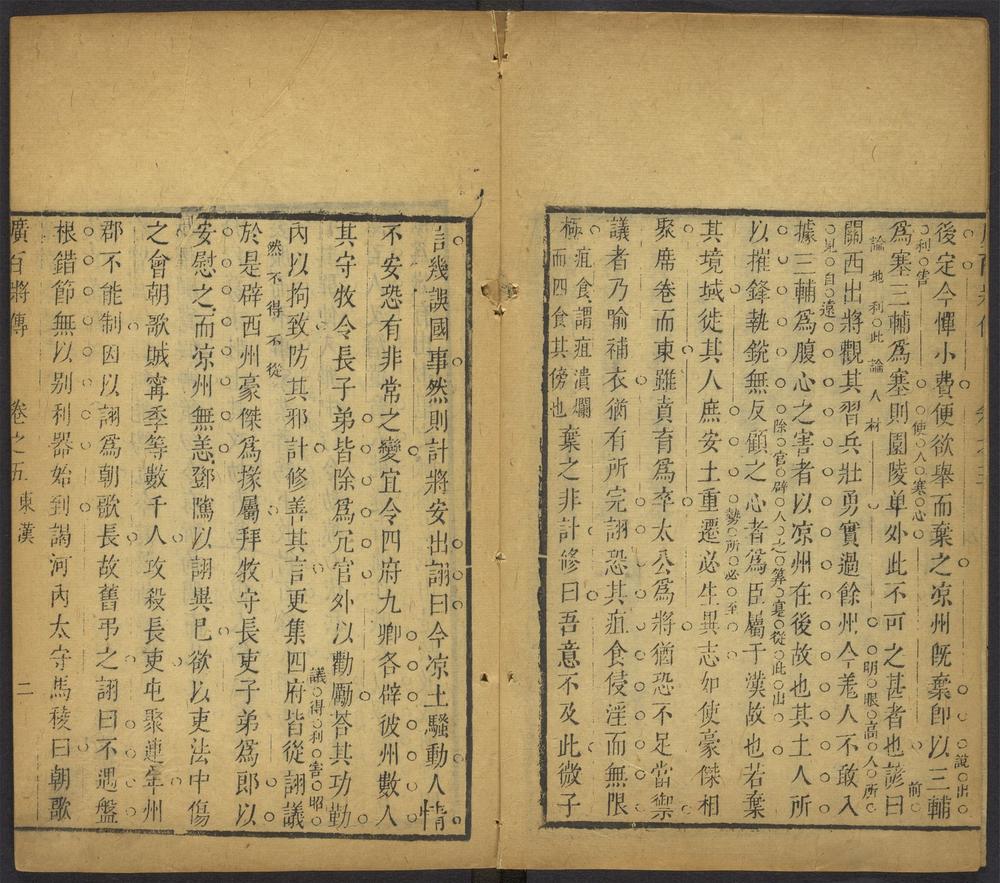 後定今憚小費便欲舉而棄之凉州旣棄卽以三輔
利害
便人寒心
說出
爲塞三輔爲塞則園陵单外此不可之甚者也諺曰
論地利此論人材
明眼高人所
前
關西出將觀其習兵壯勇實過餘州今羗人不敢入
見自遠
據三輔爲腹心之害者以凉州在後故也其土人所
除官辟人之筭寔從此出
以摧鋒執銳無反顧之心者爲臣屬于漢故也若棄
勢所必至
其境域徙其人庶安土重遷必生異志如使豪傑相
聚席卷而東雖賁育爲卒太公爲將猶恐不足當禦
議者乃喻補衣猶有所完詡恐其疽食侵淫而無限
極
疽食謂疽潰爛
而四食其傍也
棄之非計修曰吾意不及此微子
言幾誤國事然則計將安出詡曰今凉土騷動人情
不安恐有非常之變宜令四府九卿各辟彼州數人
其守牧令長子弟皆除爲冗官外以勸勵荅其功勤
議得利害昭
内以拘致防其邪計修善其言更集四府皆從詡議
然不得不從
於是辟西州豪傑爲掾屬拜牧守長吏子弟爲郎以
安慰之而凉州無恙鄧隲以詡異已欲以吏法中傷
之會朝歌賊甯季等數千人攻殺長吏屯聚連年州
郡不能制因以詡爲朝歌長故舊弔之詡曰不遇盤
根錯節無以别利器始到謁河内太守馬稜曰朝歌
廣百將傳　卷之五　東漢　二